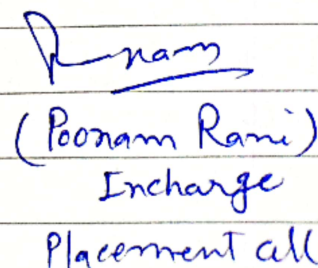 Poonam
(Poonam Rani)
Incharge
Placement cell